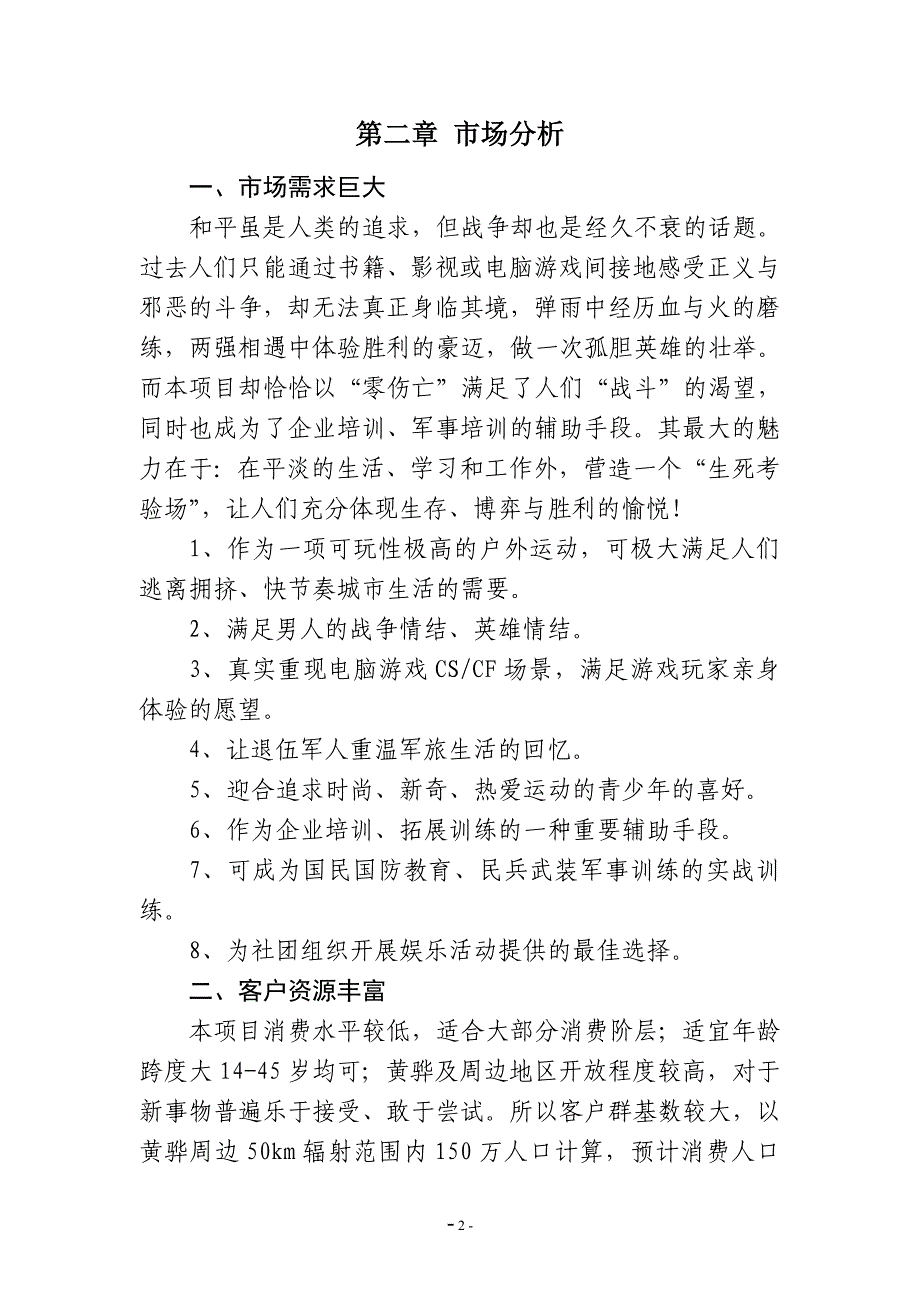 第二章 市场分析
一、市场需求巨大
和平虽是人类的追求，但战争却也是经久不衰的话题。
过去人们只能通过书籍、影视或电脑游戏间接地感受正义与
邪恶的斗争，却无法真正身临其境，弹雨中经历血与火的磨
练，两强相遇中体验胜利的豪迈，做一次孤胆英雄的壮举。
而本项目却恰恰以“零伤亡”满足了人们“战斗”的渴望，
同时也成为了企业培训、军事培训的辅助手段。其最大的魅
力在于：在平淡的生活、学习和工作外，营造一个“生死考
验场”，让人们充分体现生存、博弈与胜利的愉悦！
1、作为一项可玩性极高的户外运动，可极大满足人们
逃离拥挤、快节奏城市生活的需要。
2、满足男人的战争情结、英雄情结。
3、真实重现电脑游戏 CS/CF 场景，满足游戏玩家亲身
体验的愿望。
4、让退伍军人重温军旅生活的回忆。
5、迎合追求时尚、新奇、热爱运动的青少年的喜好。
6、作为企业培训、拓展训练的一种重要辅助手段。
7、可成为国民国防教育、民兵武装军事训练的实战训
练。
8、为社团组织开展娱乐活动提供的最佳选择。
二、客户资源丰富
本项目消费水平较低，适合大部分消费阶层；适宜年龄
跨度大 14-45 岁均可；黄骅及周边地区开放程度较高，对于
新事物普遍乐于接受、敢于尝试。所以客户群基数较大，以
黄骅周边 50km 辐射范围内 150 万人口计算，预计消费人口
- 2 -